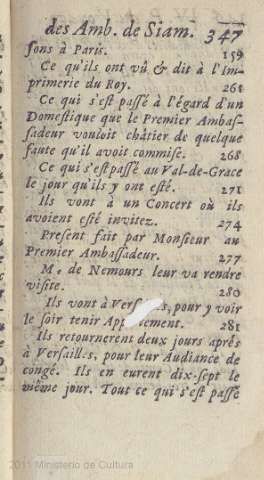 des Amb. de Siam. 347
sons à Paris. 159
Ce qu'ils ont vû & dit à l'Im-
primerie du Roy. 261
Ce qui s'est passé à l'égard d'un
Domestique que le Premier Ambas-
sadeur vouloit châtier de quelque
faute qu'il avoit commise. 268
Ce qui s'est passé au Val-de-Grace
le jour qu'ils y ont esté. 271
Ils vont à un Concert où ils
avoient esté invitez. 274
Present fait par Monsieur au
Premier Ambassadeur. 277
M. de Nemours leur va rendre
visite. 280
Ils vont à pour y voir
le soir tenir 281
Ils retournerent deux jours aprés
à Versailles, pour leur Audiance de
congé. Ils en eurent dix-sept le
même jour. Tout ce qui s'est passé
2011 Ministerio de Cultura